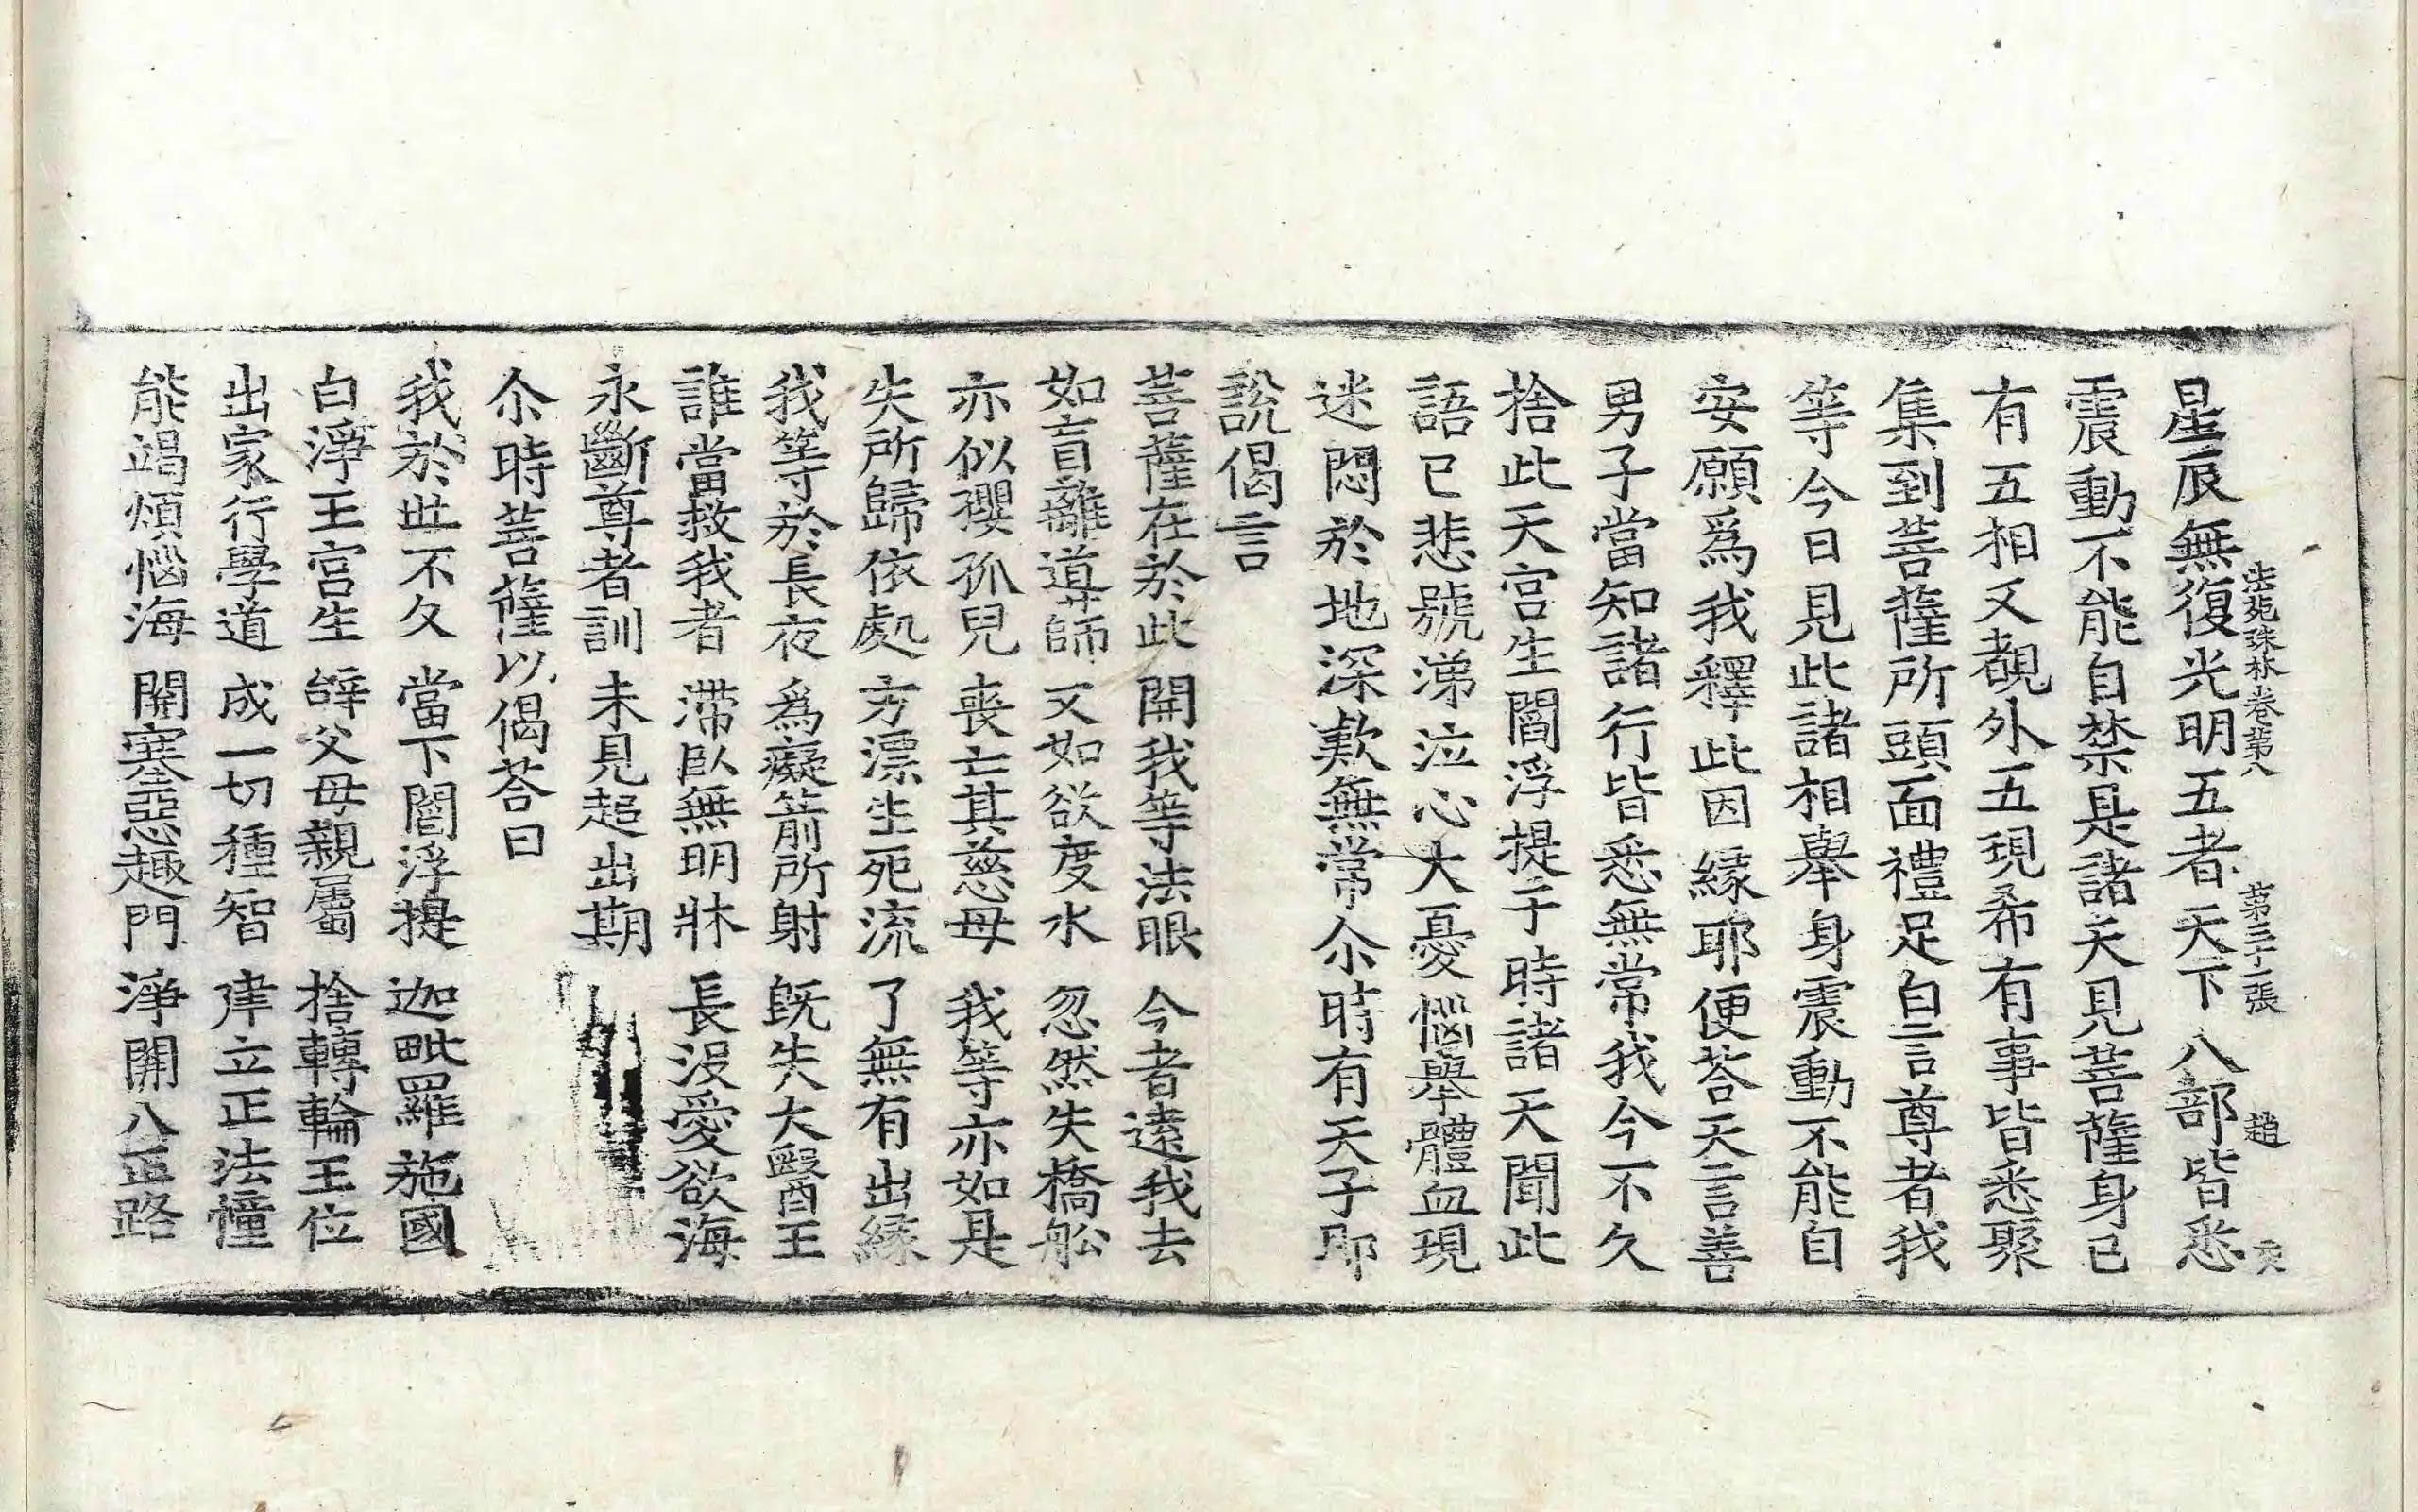 法苑珠林卷第八　第三十一張　趙
星辰無復光明五者天下八部皆悉
震動不能自禁是諸天見菩薩身已
有五相又覩外五現希有事皆悉聚
集到菩薩所頭面禮足白言尊者我
等今日見此諸相舉身震動不能自
安願爲我釋此因緣耶便荅天言善
男子當知諸行皆悉無常我今不久
捨此天宮生閻浮提于時諸天聞此
語已悲號涕泣心大憂惱舉體血現
迷悶於地深歎無常尒時有天子即
說偈言
菩薩在於此　開我等法眼　今者遠我去
如盲離導師　又如欲度水　忽然失橋舩
亦似孾孤兒　喪亡其慈母　我等亦如是
失所歸依處　方漂生死流　了無有出緣
我等於長夜　爲癡箭所射　旣失大醫王
誰當救我者　滯臥無明牀　長沒愛欲海
永斷尊者訓　未見超出期
尒時菩薩以偈荅曰
我於世不久　當下閻浮提　迦毗羅施國
白淨王宮生　辭父母親屬　捨轉輪王位
出家行學道　成一切種智　建立正法幢
能竭煩惱海　開塞惡趣門　淨開八正路